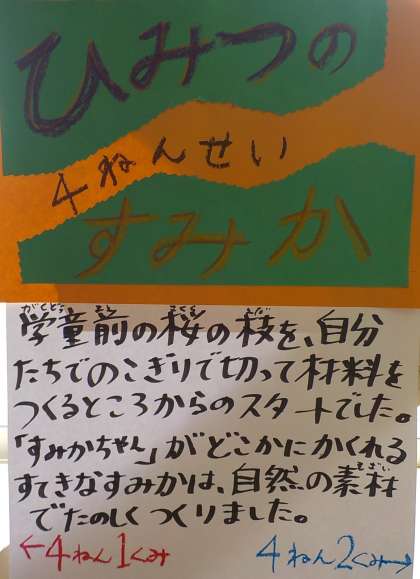 ひみつの
4ねんせい
すみか
学童前の桜の枝を、自分
たちでのこぎりで切って材料を
つくるところからのスタートでした。
「すみかちゃん」がどこかにかくれる
すてきなすみかは、自然の素材
でたのしくつくりました。
←4ねん1くみ
4ねん2くみ→